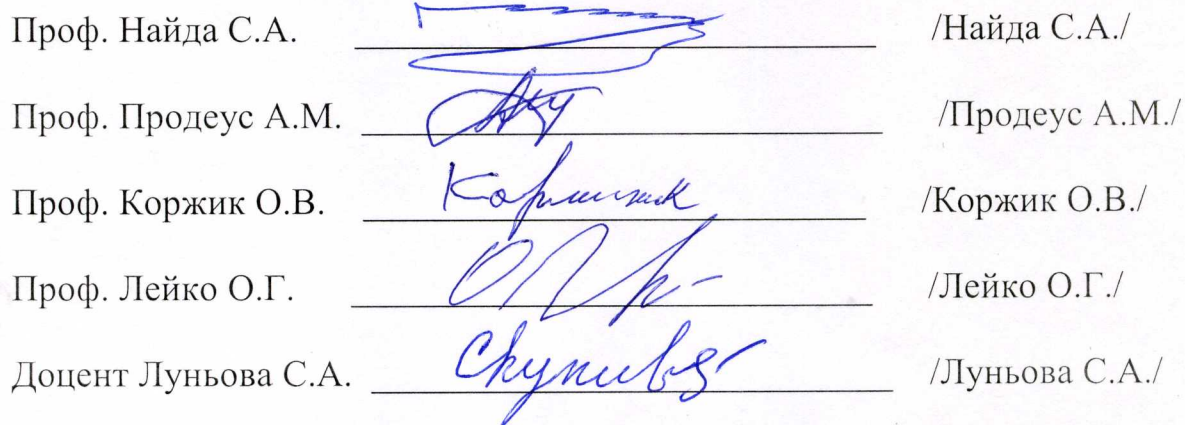 Проф. Найда С.А. /Найда С.А./
Проф. Продеус А.М. /Продеус А.М./
Проф. Коржик О.В. /Коржик О.В./
Проф. Лейко О.Г. /Лейко О.Г./
Доцент Луньова С.А. /Луньова С.А./